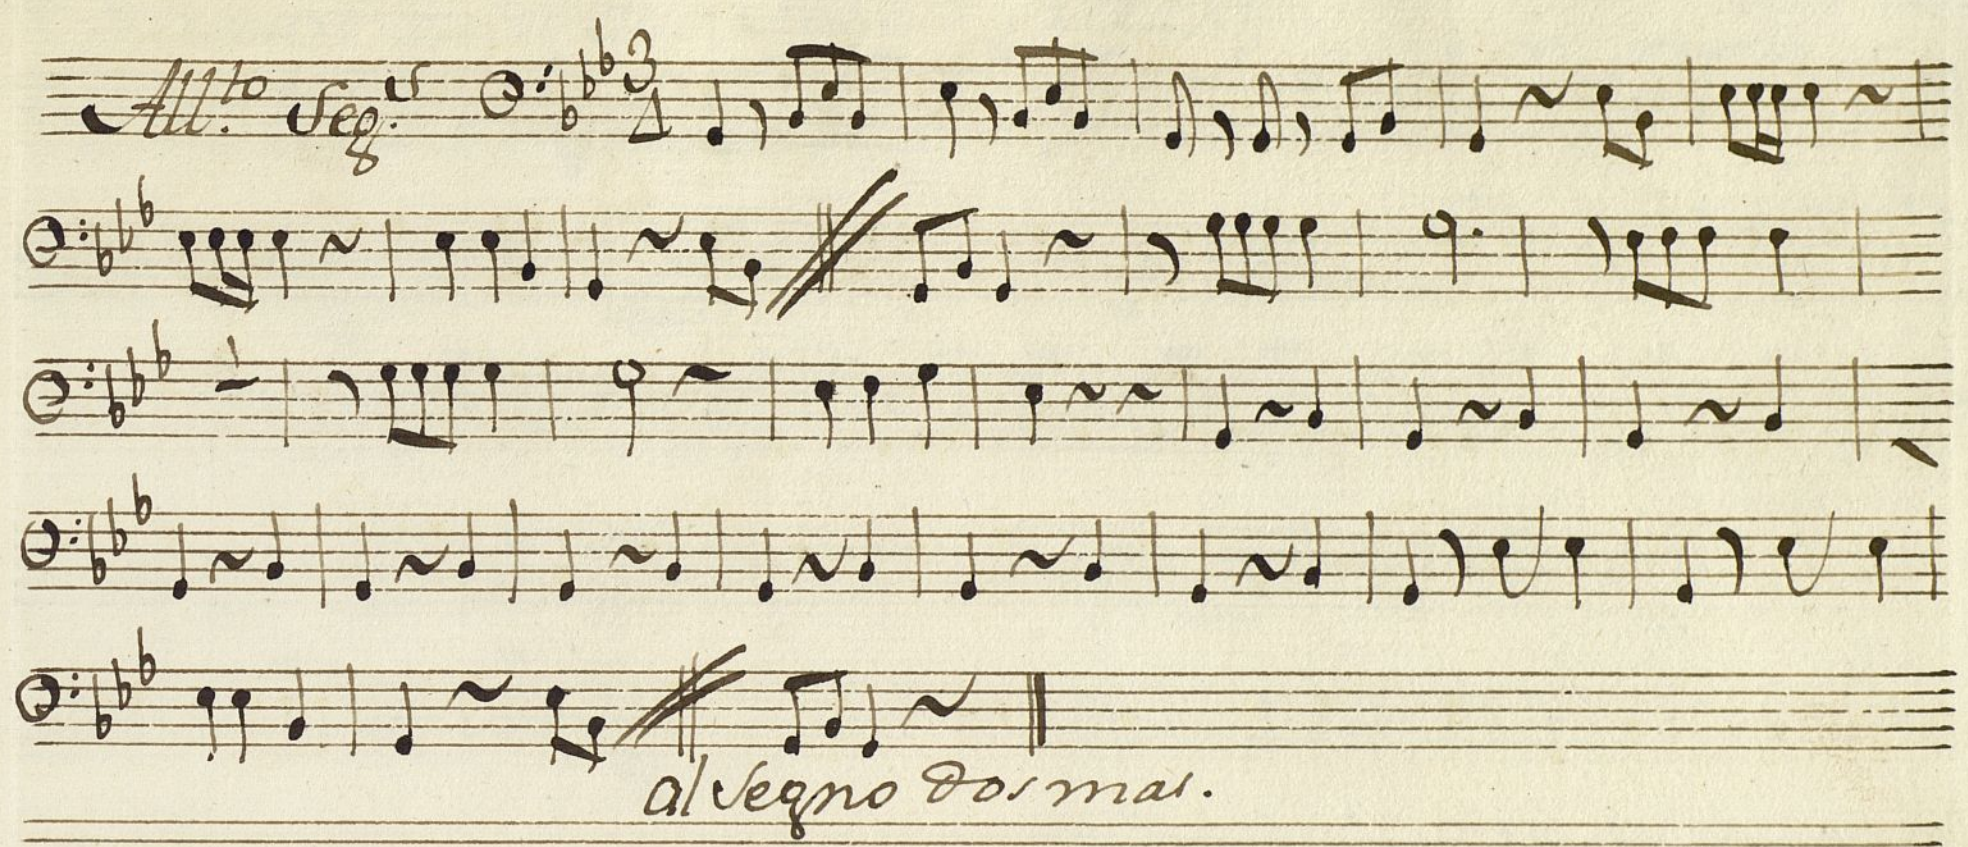 All.to Seg.as 3 4
al segno dos mas.